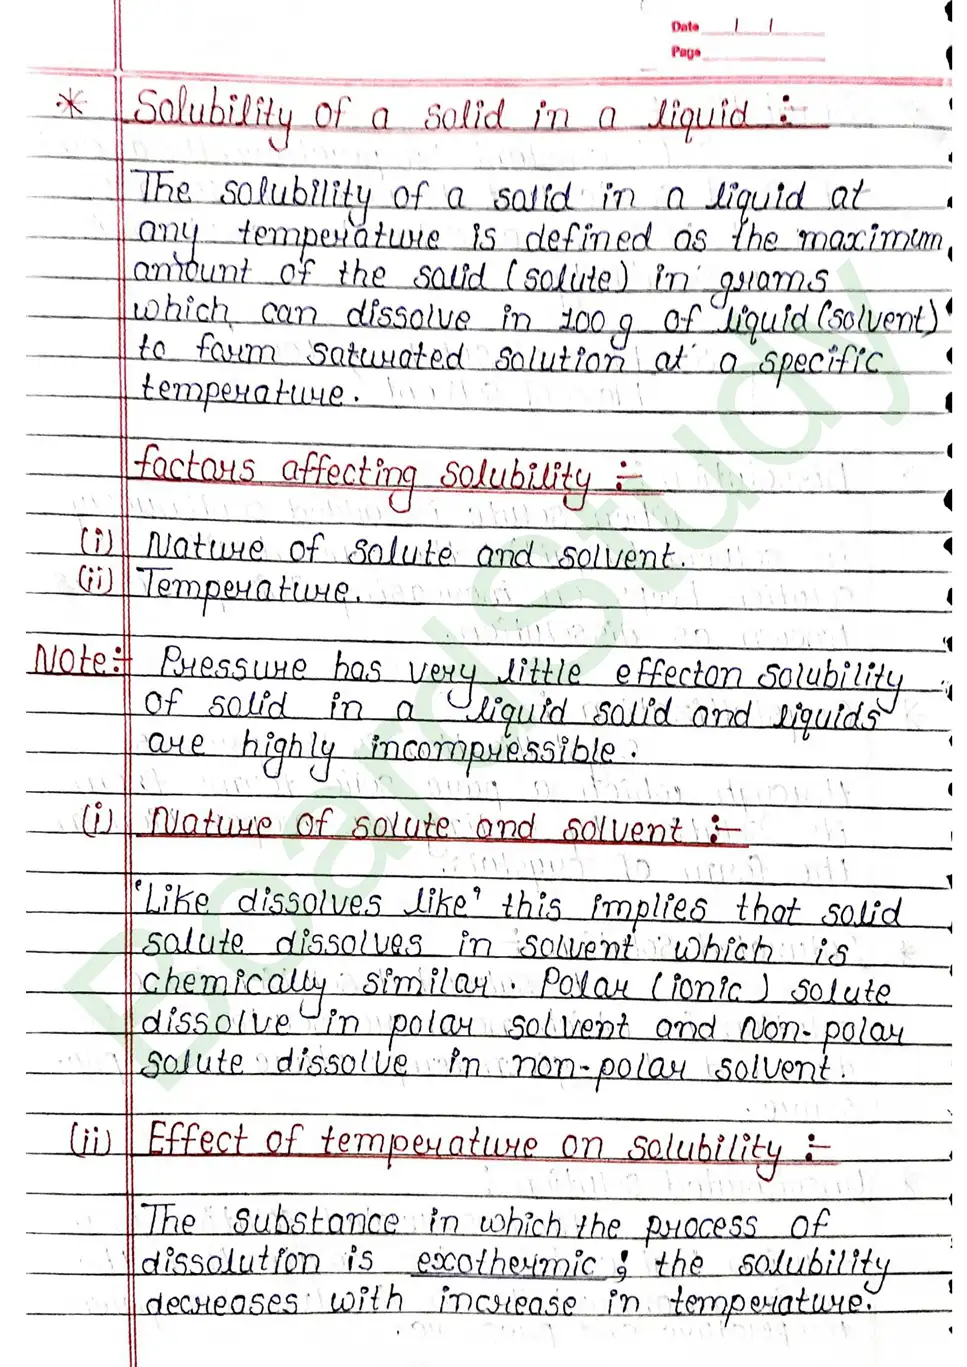 Date
Page
* Solubility of a solid in a liquid :-
The solubility of a solid in a liquid at
any temperature is defined as the maximum
amount of the solid (solute) in grams
which can dissolve in 100 g of liquid (solvent)
to form saturated solution at a specific
temperature.
factors affecting solubility :-
(i) Nature of solute and solvent.
(ii) Temperature.
Note:- Pressure has very little effecton solubility
of solid in a liquid solid and liquids
are highly incompressible.
(i) Nature of solute and solvent :-
'Like dissolves like' this implies that solid
solute dissolves in solvent which is
chemically similar. Polar (ionic) solute
dissolve in polar solvent and Non-polar
solute dissolve in non-polar solvent.
(ii) Effect of temperature on solubility :-
The substance in which the process of
dissolution is exothermic ; the solubility
decreases with increase in temperature.
BoardStudy